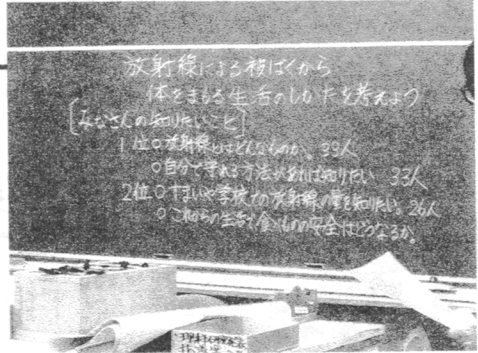 放射線による被ばくから
体をまもる生活のしかたを考えよう
[みなさんの知りたいこと]
1位○放射線とはどんなものか。33人
○自分で守れる方法があれば知りたい 33人
2位○すまいや学校での放射線の量を知りたい。26人
○これからの生活や食べものの安全はどうなるか。